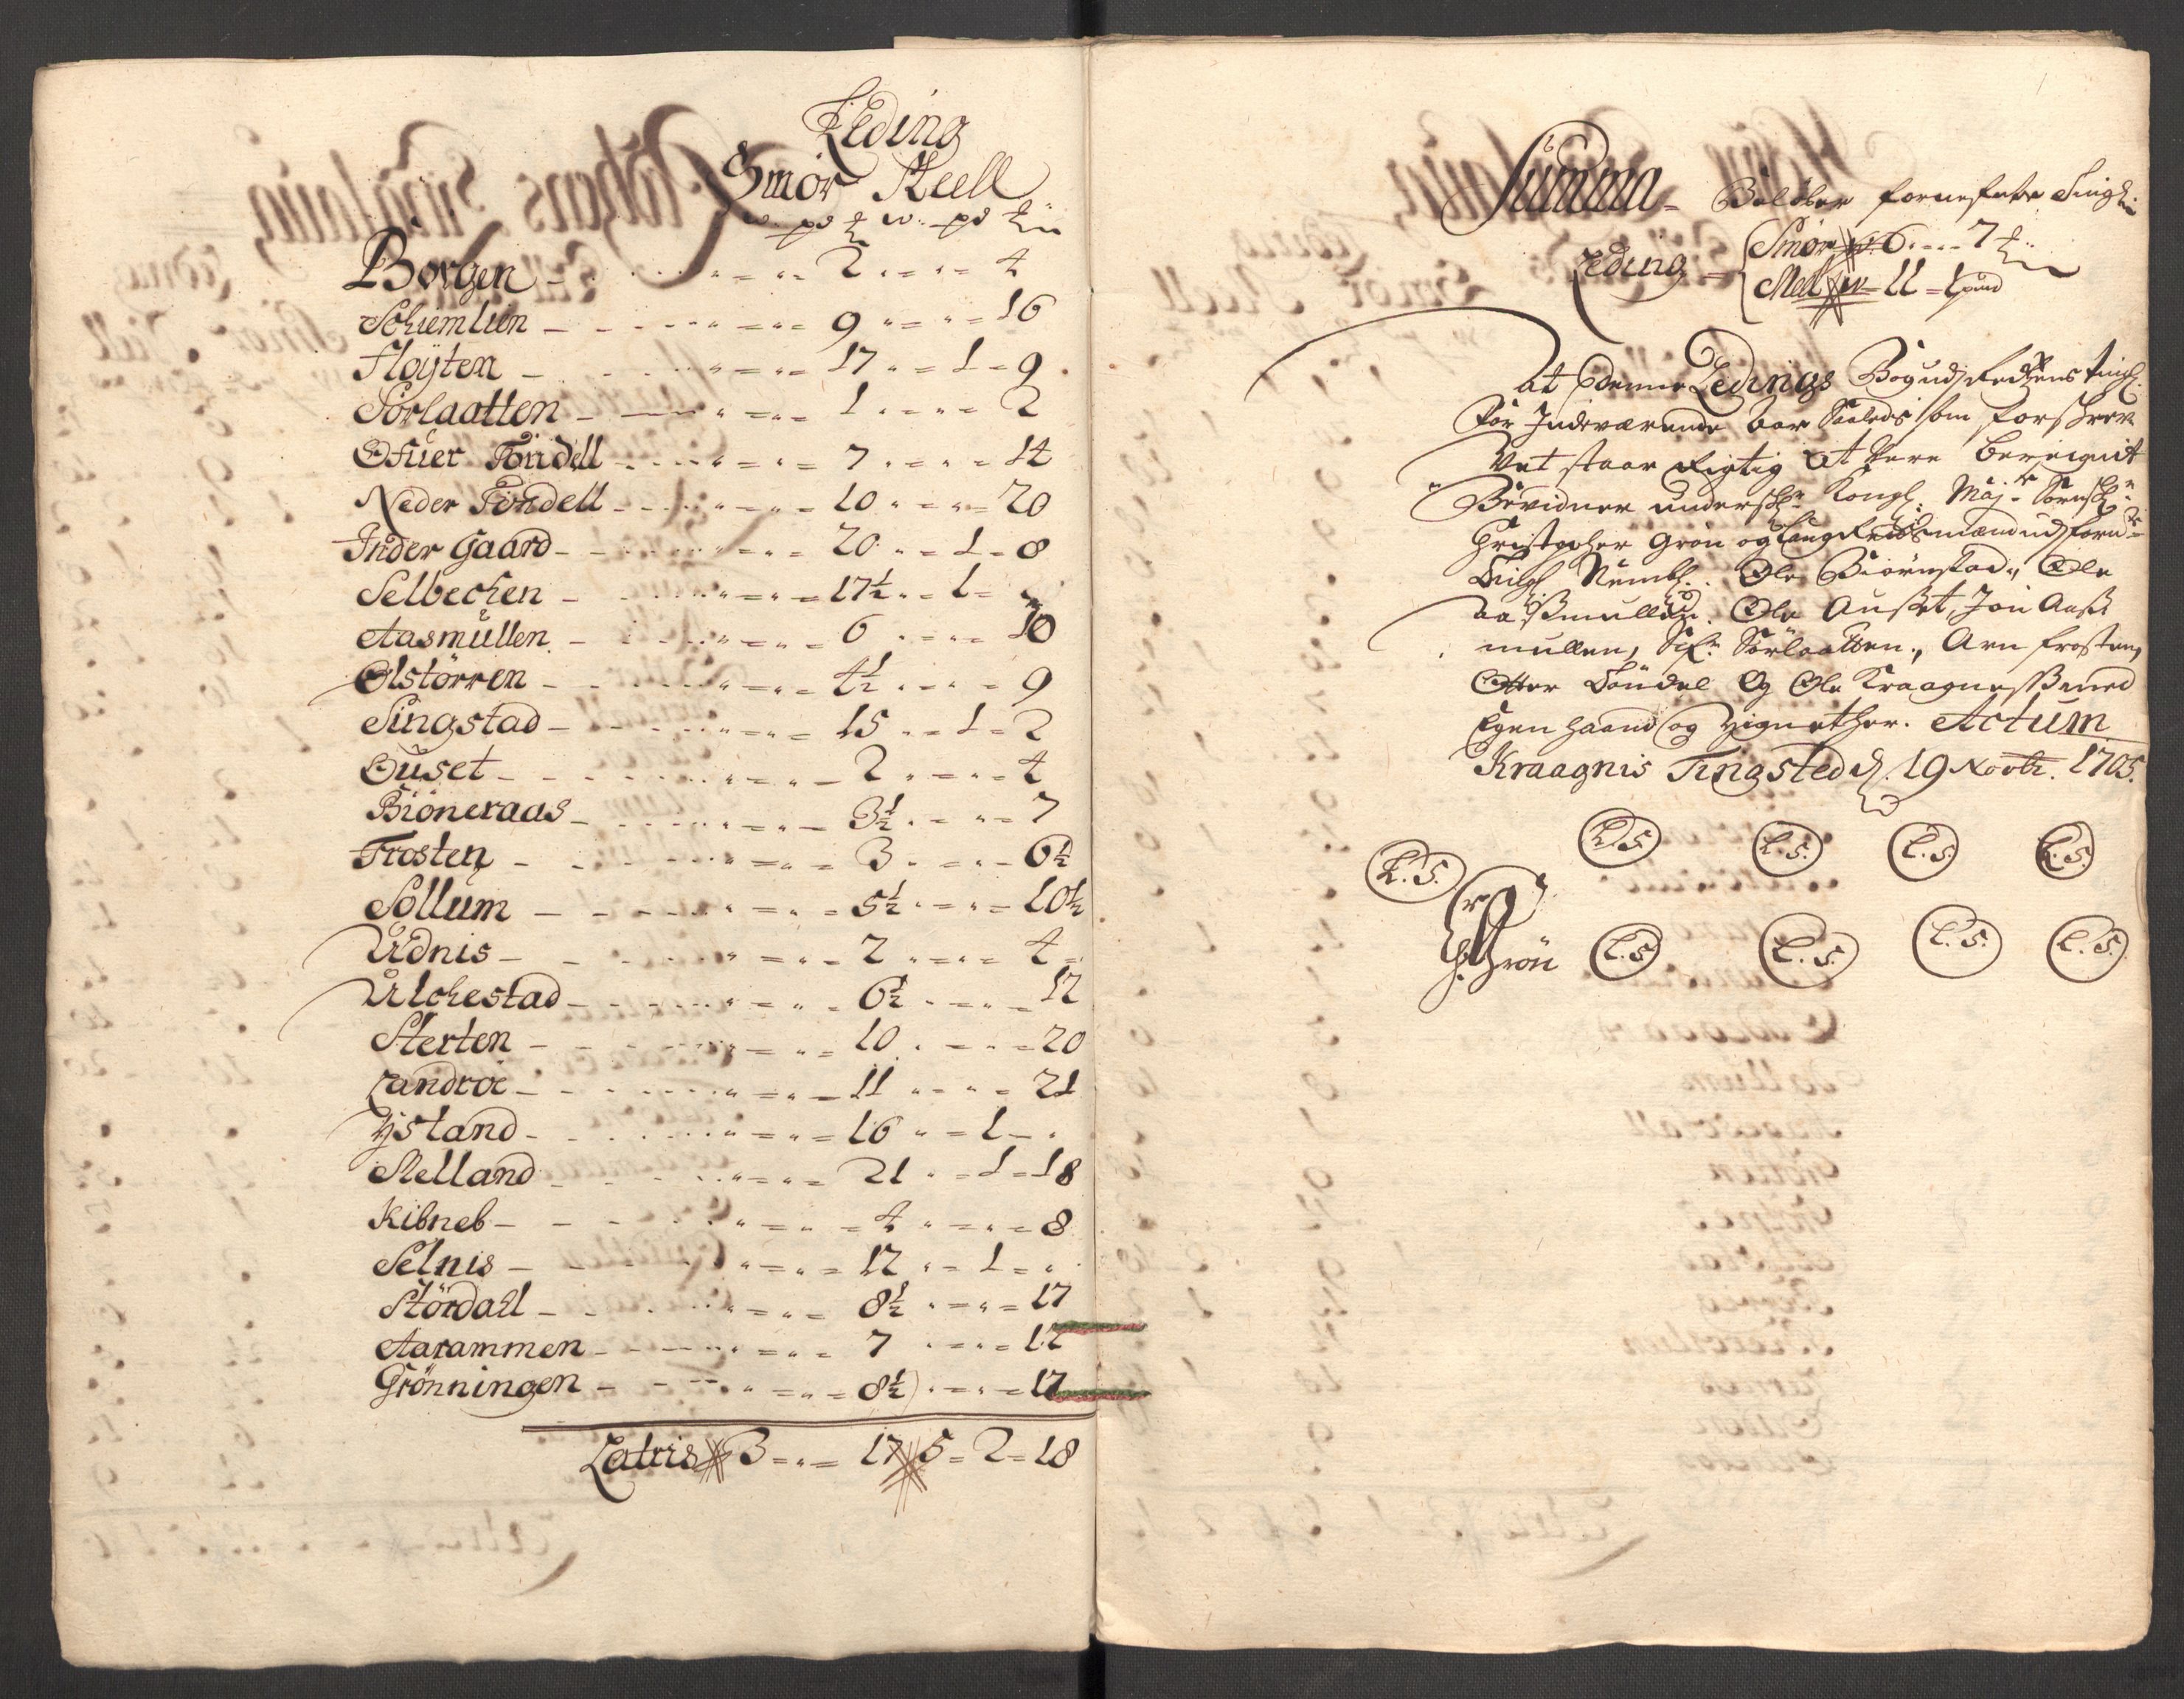 Leding
Smör Meell
w. pd ℔ w. pd ℔
Borgen - 2 - 4
Schiemlien - 9 - 16
Fløyten - 17 - 1 - 9
Sörlaatten - 1 - 2
Ofuer Fondell - 7 - 14
Neder Fondell - 10 - 20
Inder Gaard - 20 - 1 - 8
Selbechen - 17½ - 1 -
Aasmullen - 6 - 10
Olstörren - 4½ - 9
Singstad - 15 - 1 - 2
Ouset - 2 - 4
Bioneraas - 3½ - 7
Frosten - 3 - 6½
Sollum - 5½ - 10½
Udnis - 2 - 4
Ulchestad - 6½ - 12
Sterten - 10 - 20
Landroe - 11 - 21
Ystand - 16 - 1 -
Melland - 21 - 1 - 18
Kibneb - 4 - 8
Selnis - 12 - 1 -
Stördall - 8½ - 17
Aarammen - 7 - 12
Grönningen - 8½ - 17
Latris 3 - 17 5 - 2 - 18
Summa - Beløber
Leding - Smör w 6 - 7 ℔
Meel w - 11 - 1 pund
At denne Ledings
for Indeværende Aar Saaledis som forschrev
staar Rigtig at være beregnit
Bevidner undersch: Kongl. Maj:
Christopher Grön og
Nembl. Ole Biörnstad, Ole
Aasmullen. Ole Auset, Jon Aas
mullen, Sörlaatten, Arn frosten,
Otter Fondel Og Ole Kraagnes med
Egen haand og Zignether. Actum
Kraagnis Tingsted d. 19 Novbr. 1705.
L.S. L.S. L.S. L.S. L.S.
Grön L.S. L.S. L.S. L.S.